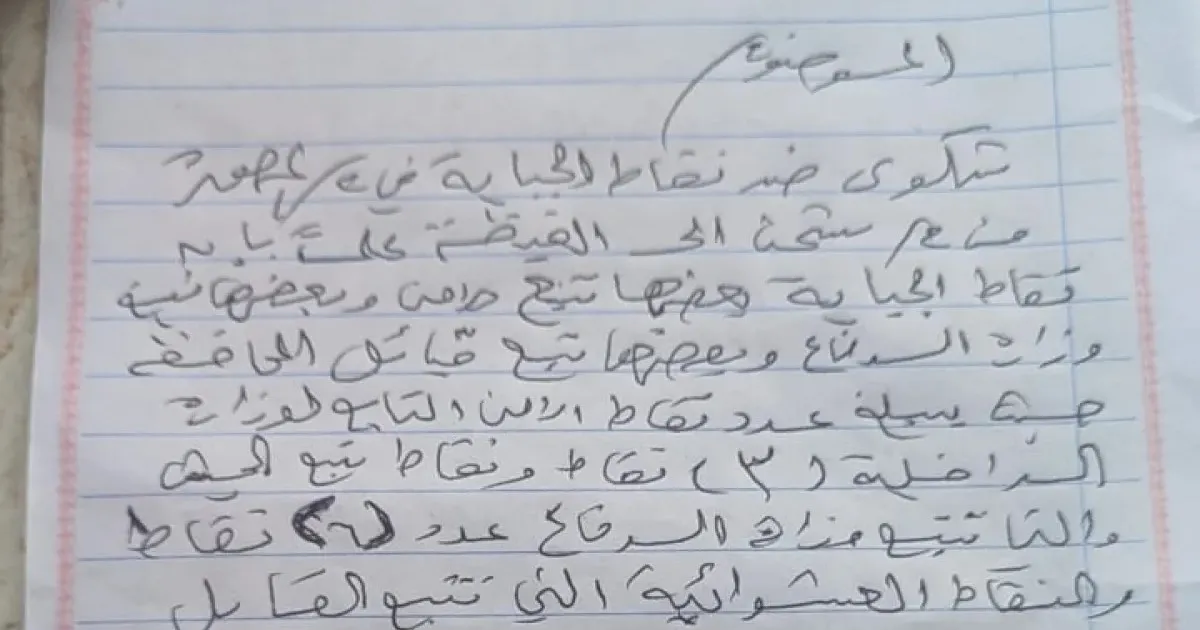 الموضوع
شكوى ضد نقاط الجباية في م/ المهرة
من م/ شحن الى الغيضة علماً بانه
نقاط الجباية بعضها تتبع الامن وبعضها تبع
وزارة الدفاع وبعضها تتبع قبائل المحافضه
حيث يبلغ عدد نقاط الامن التابع لوزارة
الداخلية (٣) نقاط ونقاط تبع الجيش
والتا تتبع وزارة الدفاع عدد نقاط
والنقاط العشوائية التي تتبع القبايل